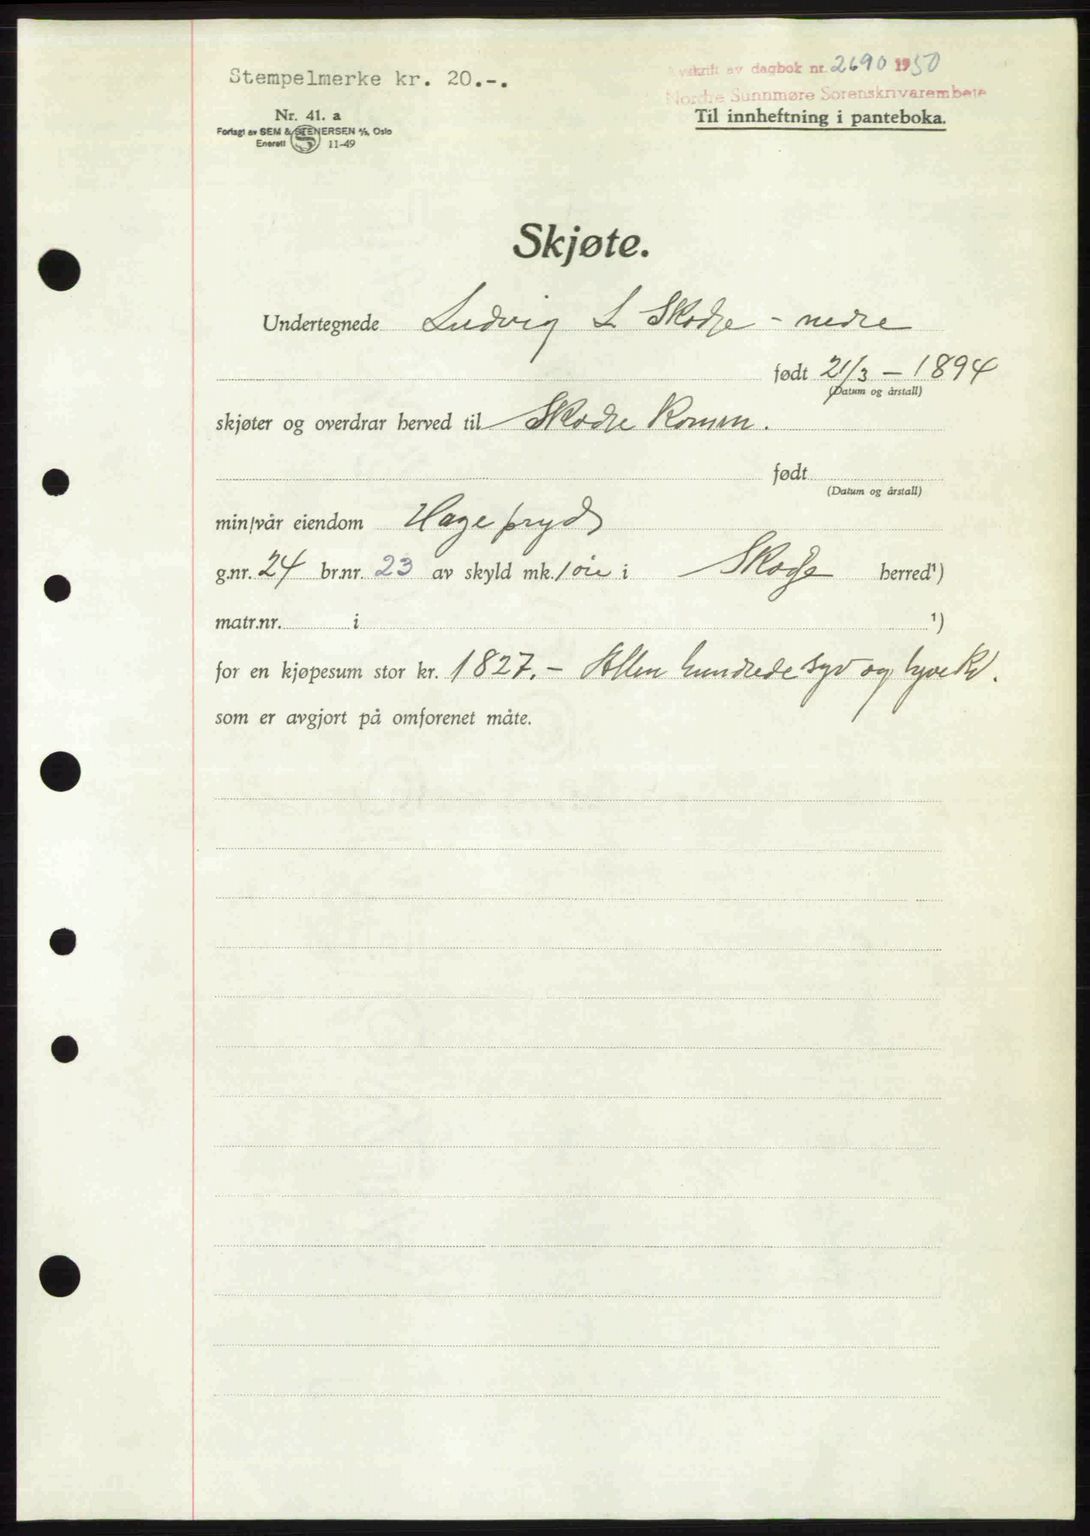 Stempelmerke kr. 20.-.
Avskrift av dagbok nr. 2690 1950
Nordre Sunnmøre Sorenskrivarembete
Til innheftning i panteboka.
Nr. 41. a
Forlagt av SEM & STENERSEN A/S, Oslo
Enerett S 11-49
Skjøte.
Undertegnede Ludvig L Skodje - nedre
født 21/3 - 1894
(Datum og årstall)
skjøter og overdrar herved til Skodje Komm.
født
(Datum og årstall)
min/vår eiendom Hagepryd
g.nr. 24 br.nr. 23 av skyld mk. 1 øre i Skodje herred¹)
matr.nr. i ¹)
for en kjøpesum stor kr. 1827.- Atten hundrede syv og tyve Kr.
som er avgjort på omforenet måte.